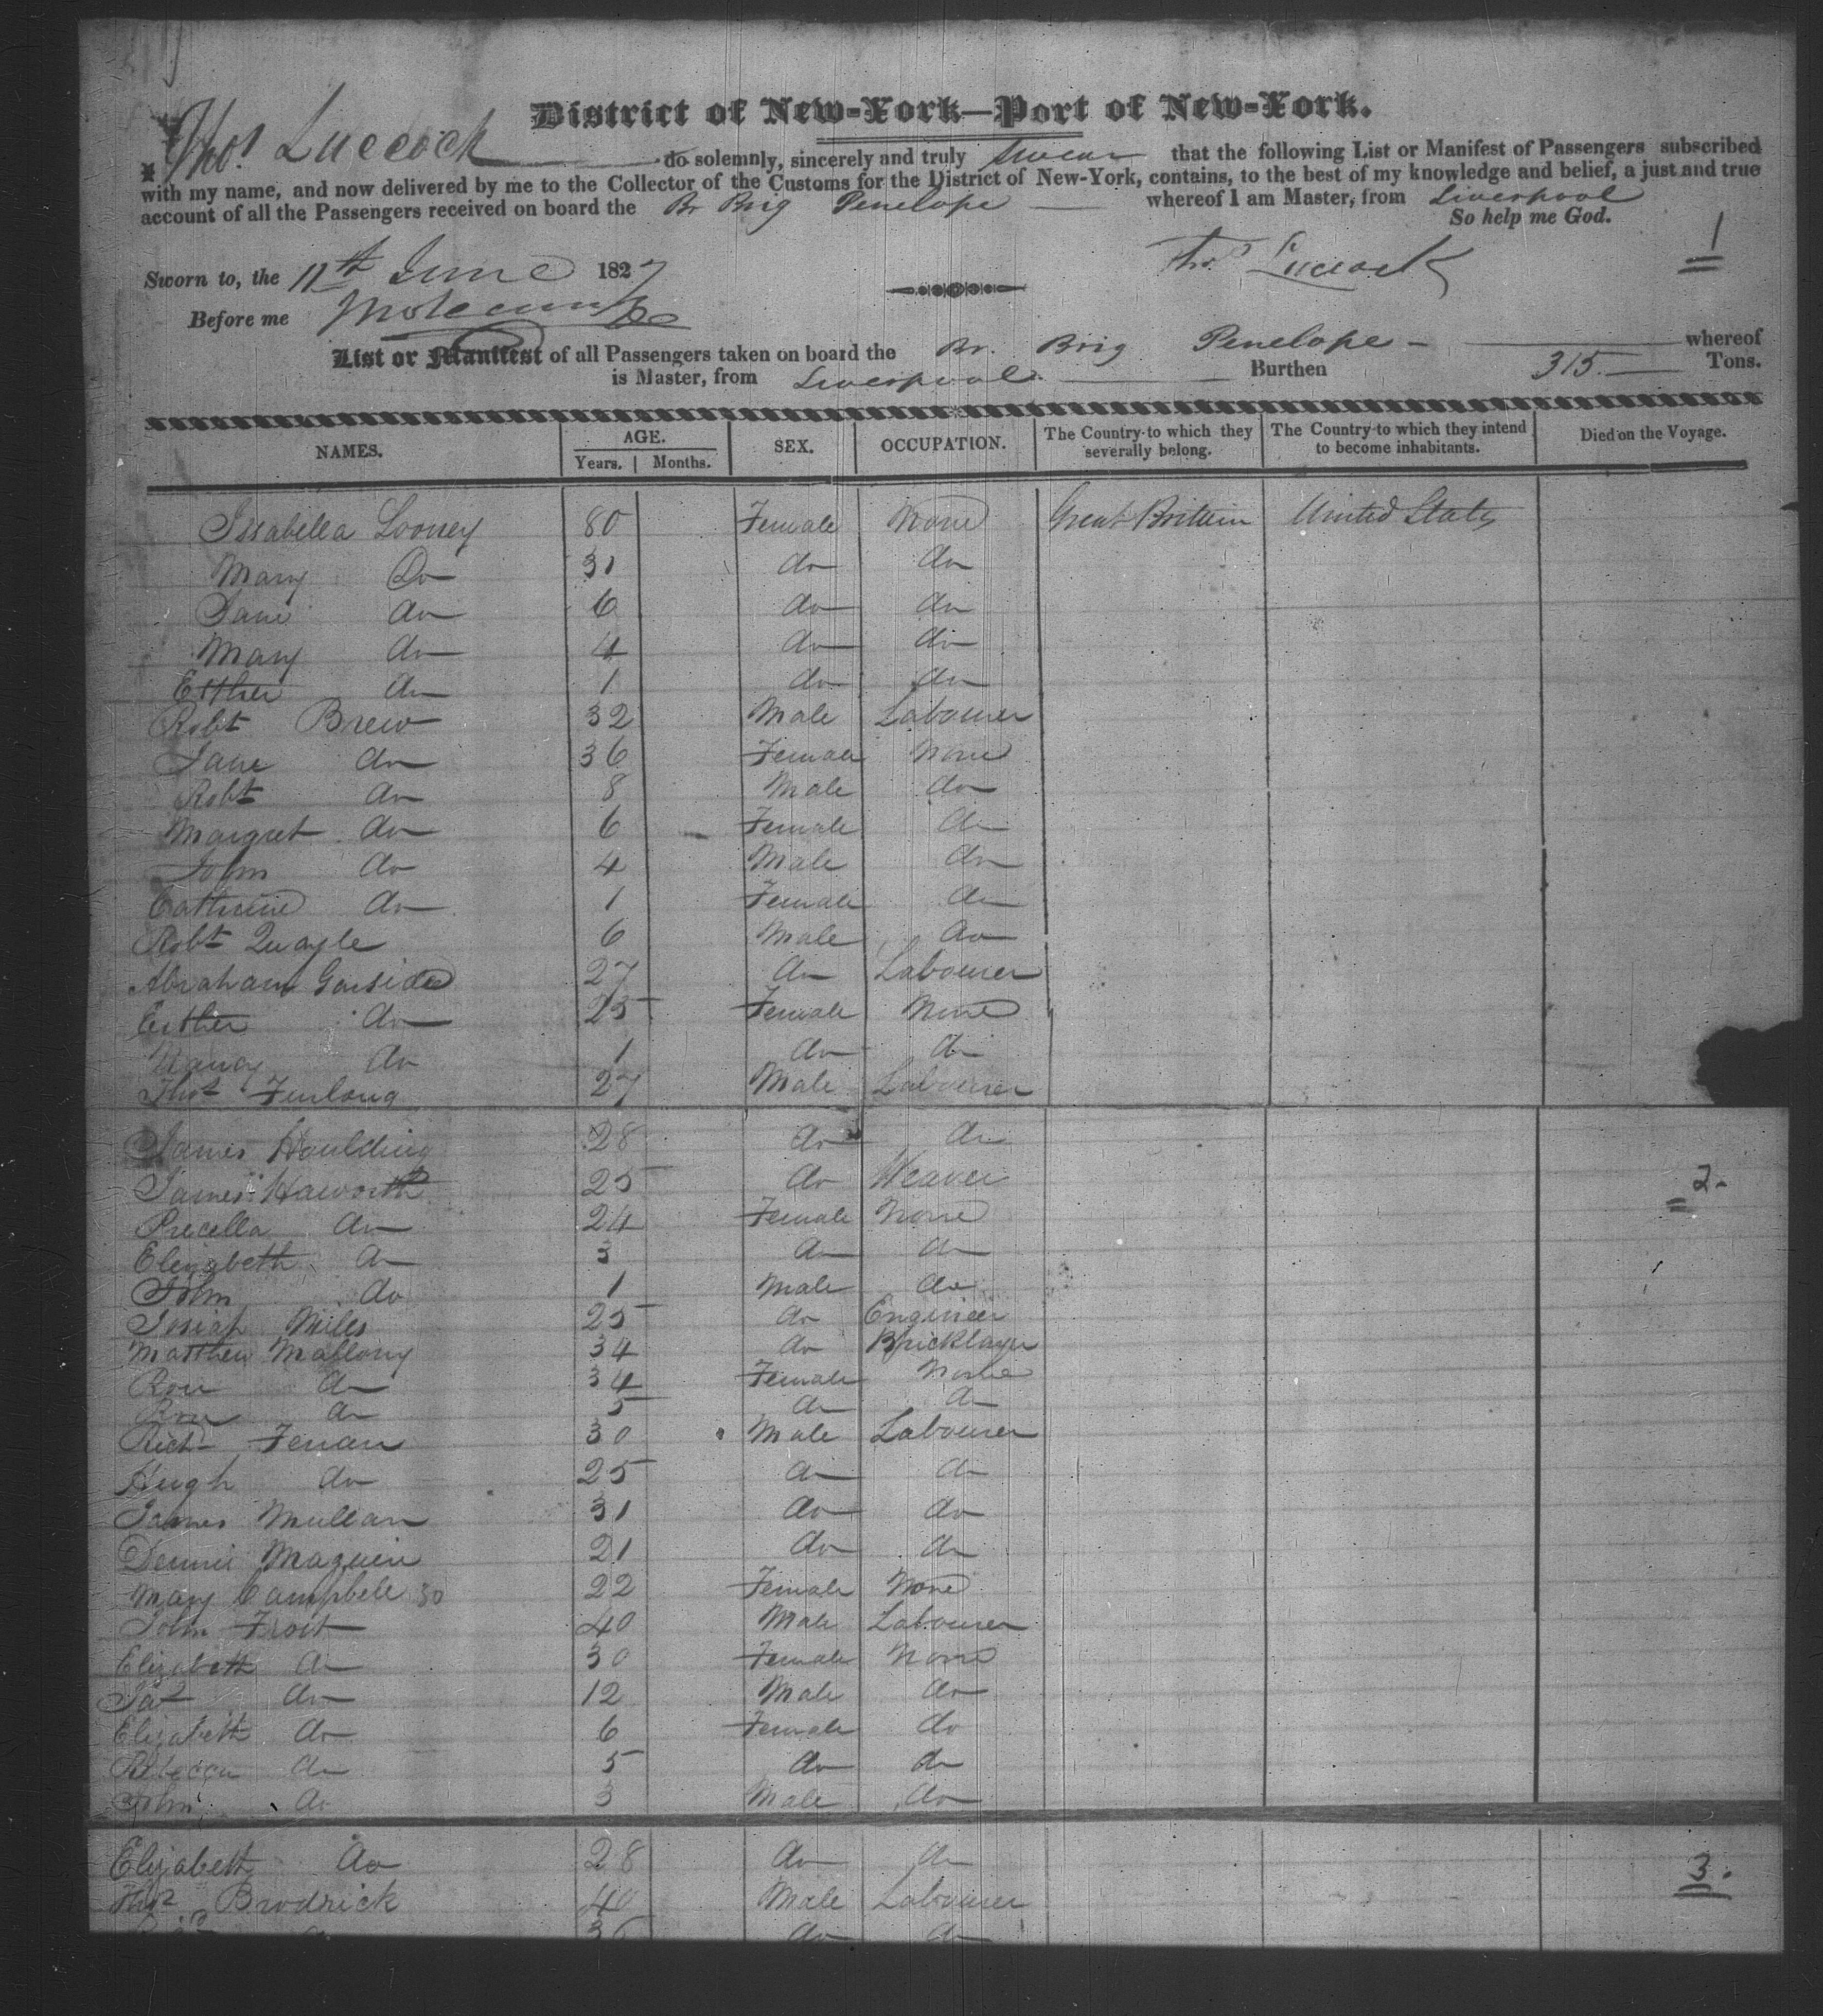 District of New-York—Port of New-York.
I Thos Luccock do solemnly, sincerely and truly swear that the following List or Manifest of Passengers subscribed
with my name, and now delivered by me to the Collector of the Customs for the District of New-York, contains, to the best of my knowledge and belief, a just and true
account of all the Passengers received on board the Br Brig Penelope whereof I am Master, from Liverpool
So help me God.
1
Sworn to, the 11th June 1827 Thos Luccock
Before me
List or Manifest of all Passengers taken on board the Br. Brig Penelope whereof
is Master, from Liverpool. Burthen 315 Tons.
NAMES. AGE. SEX. OCCUPATION. The Country to which they severally belong. The Country to which they intend to become inhabitants. Died on the Voyage.
Years. Months.
Issabella Looney 80 Female None Great Britain United States
Mary Do 31 do do
Jane do 6 do do
Mary do 4 do do
Esther do 1 do do
Robt Brew 32 Male Labourer
Jane do 36 Female None
Robt do 8 Male do
Margret do 6 Female do
John do 4 Male do
Catherine do 1 Female do
Robt Quayle 6 Male do
Abraham Garside 27 do Labourer
Esther do 25 Female None
Nancy do 1 do do
Thos Furlong 27 Male Labourer
James Houlding 28 do do
James Haworth 25 do Weaver 2
Precella do 24 Female None
Elizabeth do 3 do do
John do 1 Male do
Josiah Miles 25 do Engineer
Matthew Mallony 34 do Bricklayer
Rose do 34 Female None
Rose do 5 do do
Richd 30 Male Labourer
Hugh do 25 do do
James Mullan 31 do do
Dennis Maguire 21 do do
Mary Campbell 30 22 Female None
John Frost 40 Male Labourer
Elizabeth do 30 Female None
Jas do 12 Male do
Elizabeth do 6 Female do
Rebecca do 5 do do
John do 3 Male do
Elizabeth do 28 do do 3.
Thos Brodrick 40 Male Labourer
36 do do